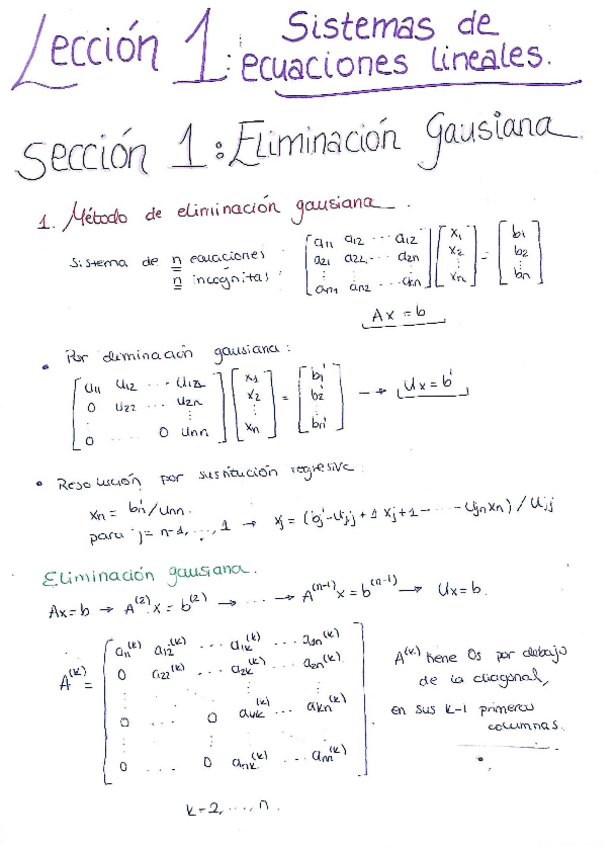 Lección 1: Sistemas de
ecuaciones lineales.
Sección 1: Eliminación Gausiana
1. Método de eliminación gausiana.
Sistema de n ecuaciones
n incógnitas:
[a11 a12 ... a12] [x1] = [b1]
[a21 a22 ... a2n] [x2] [b2]
[⋮ ⋮ ⋮] [⋮] [⋮]
[an1 an2 ... ann] [xn] [bn]
Ax = b
• Por eliminación gausiana:
[u11 u12 ... u12] [x1] = [b1'] → Ux = b'
[0 u22 ... u2n] [x2] [b2']
[⋮ ⋮] [⋮] [⋮]
[0 .... 0 unn] [xn] [bn']
• Resolución por sustitución regresiva:
xn = bn'/unn.
para j = n-1, ..., 1 → xj = (bj' - uj,j+1 xj+1 - ... - ujn xn) / ujj
Eliminación gausiana.
Ax = b → A^(2) x = b^(2) → ... → A^(n-1) x = b^(n-1) → Ux = b.
A^(k) =
[a11^(k) a12^(k) ... a1k^(k) ... a1n^(k)]
[0 a22^(k) ... a2k^(k) ... a2n^(k)]
[⋮ ⋮ ⋮ ⋮]
[0 ... 0 akk^(k) ... akn^(k)]
[⋮ ⋮ ⋮ ⋮]
[0 ... 0 ank^(k) ... ann^(k)]
A^(k) tiene 0s por debajo
de la diagonal,
en sus k-1 primeras
columnas.
k-2, ..., n.